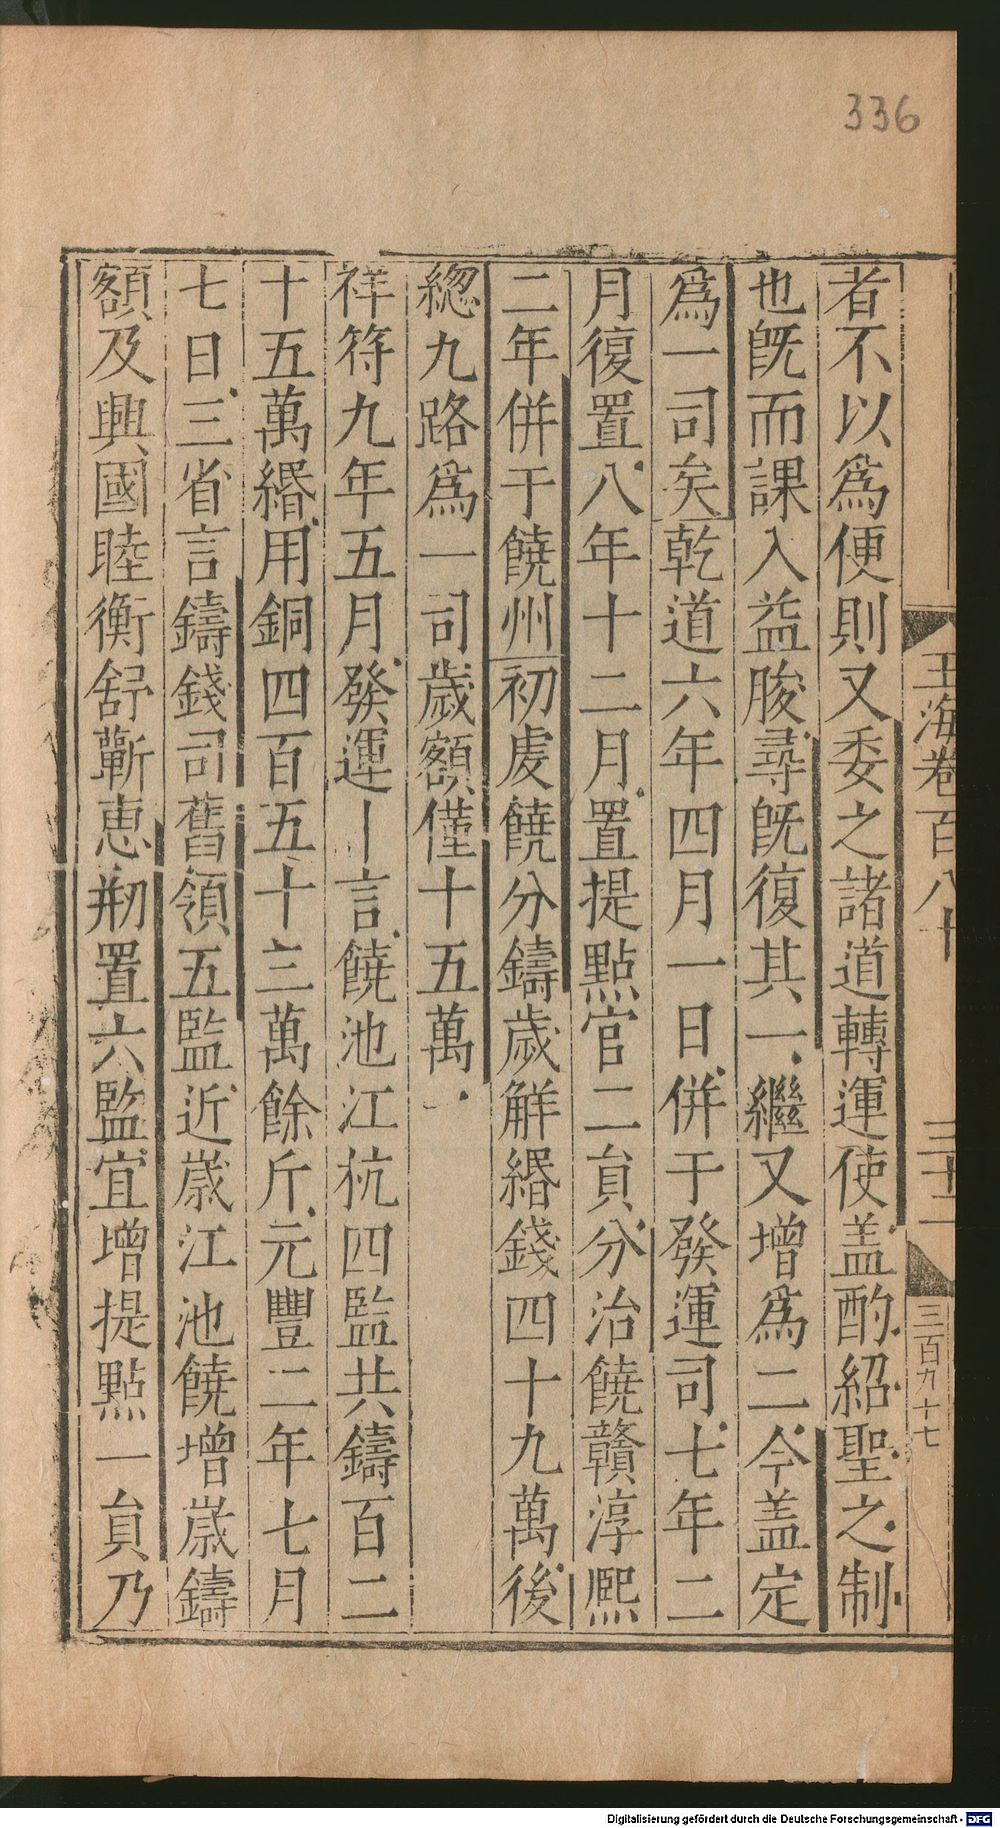 336
者不以爲便則又委之諸道轉運使盖酌紹聖之制
也旣而課入益朘尋旣復其一繼又增爲二今盖定
爲一司矣乾道六年四月一日併于發運司七年二
月復置八年十二月置提點官二負分治饒贛淳熙
二年併于饒州初處饒分鑄歲解緡錢四十九萬後
緫九路爲一司歲額僅十五萬
祥符九年五月發運丨言饒池江杭四監共鑄百二
十五萬緡用銅四百五十三萬餘斤元豐二年七月
七日三省言鑄錢司舊領五監近歲江池饒增歲鑄
額及興國睦衡舒蘄恵剏置六監宜增提點一負乃
玉海卷百八十
三十二
三百九十七
Digitalisierung gefördert durch die Deutsche Forschungsgemeinschaft - DFG